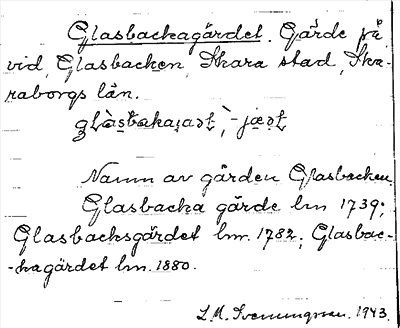 Glasbackagärdet. Gärde på
vid Glasbacken, Skara stad, Ska-
raborgs län.
Namn av gården Glasbacken.
Glasbacka gärde lm 1739;
Glasbacksgärdet lm. 1782; Glasbac-
-kagärdet lm. 1880.
L. M. Svenungsson. 1943.